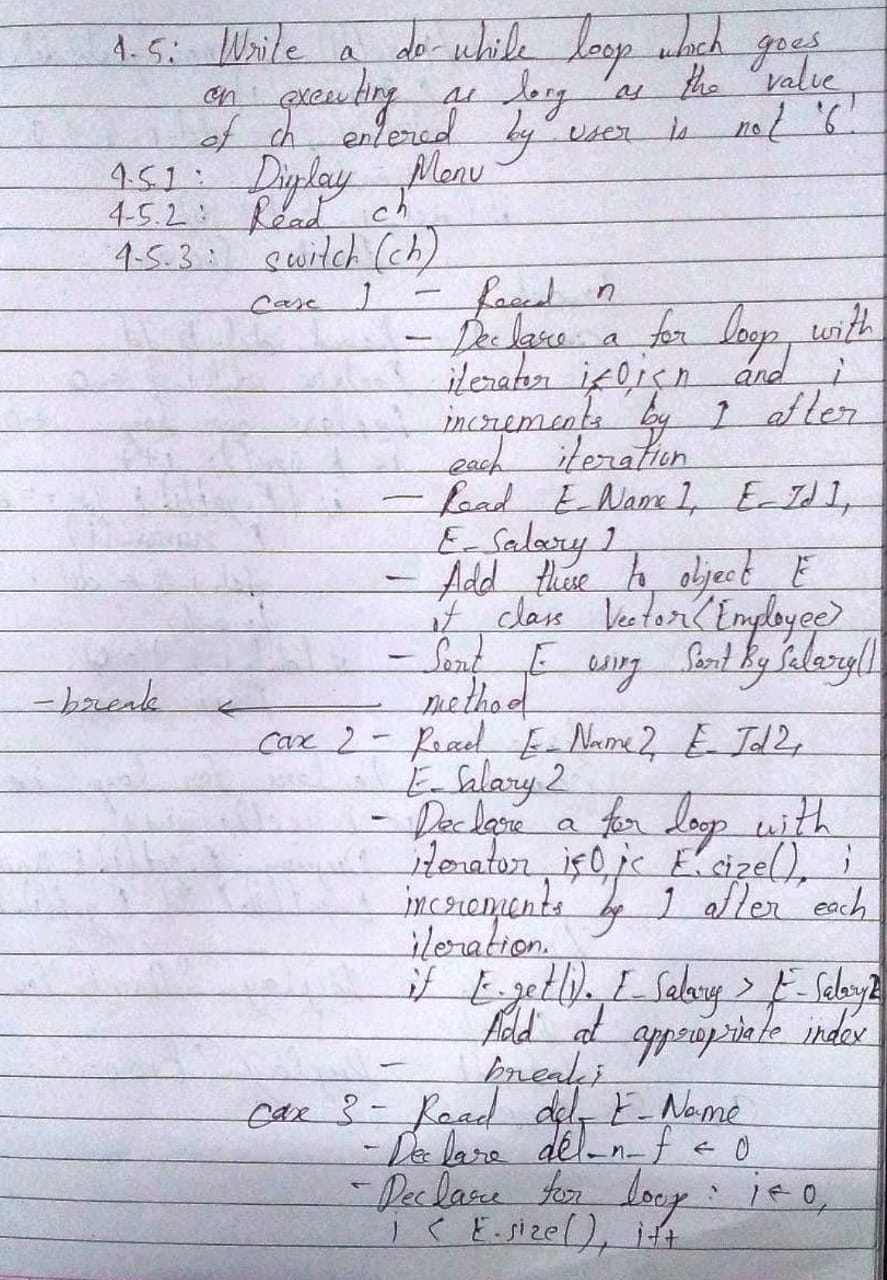 4.5: Write a do-while loop which goes
on executing as long as the value
of ch entered by user is not '6'.
4.5.1: Display Menu
4.5.2: Read ch
4.5.3: switch(ch)
case 1 - Read n
- Declare a for loop with
iterator i←0, i<n and i
increments by 1 after
each iteration
- Read E_Name1, E_Id1,
E_Salary1
- Add these to object E
of class Vector<Employee>
- Sort E using SortBySalary()
-break ← method
case 2 - Read E_Name2, E_Id2,
E_Salary2
- Declare a for loop with
iterator i←0, i< E.size(), i
increments by 1 after each
iteration.
if E.get(i).E_Salary > E_Salary2
Add at appropriate index
- break;
case 3 - Read del_E_Name
- Declare del_n_f ← 0
- Declare for loop: i←0,
i < E.size(), i++